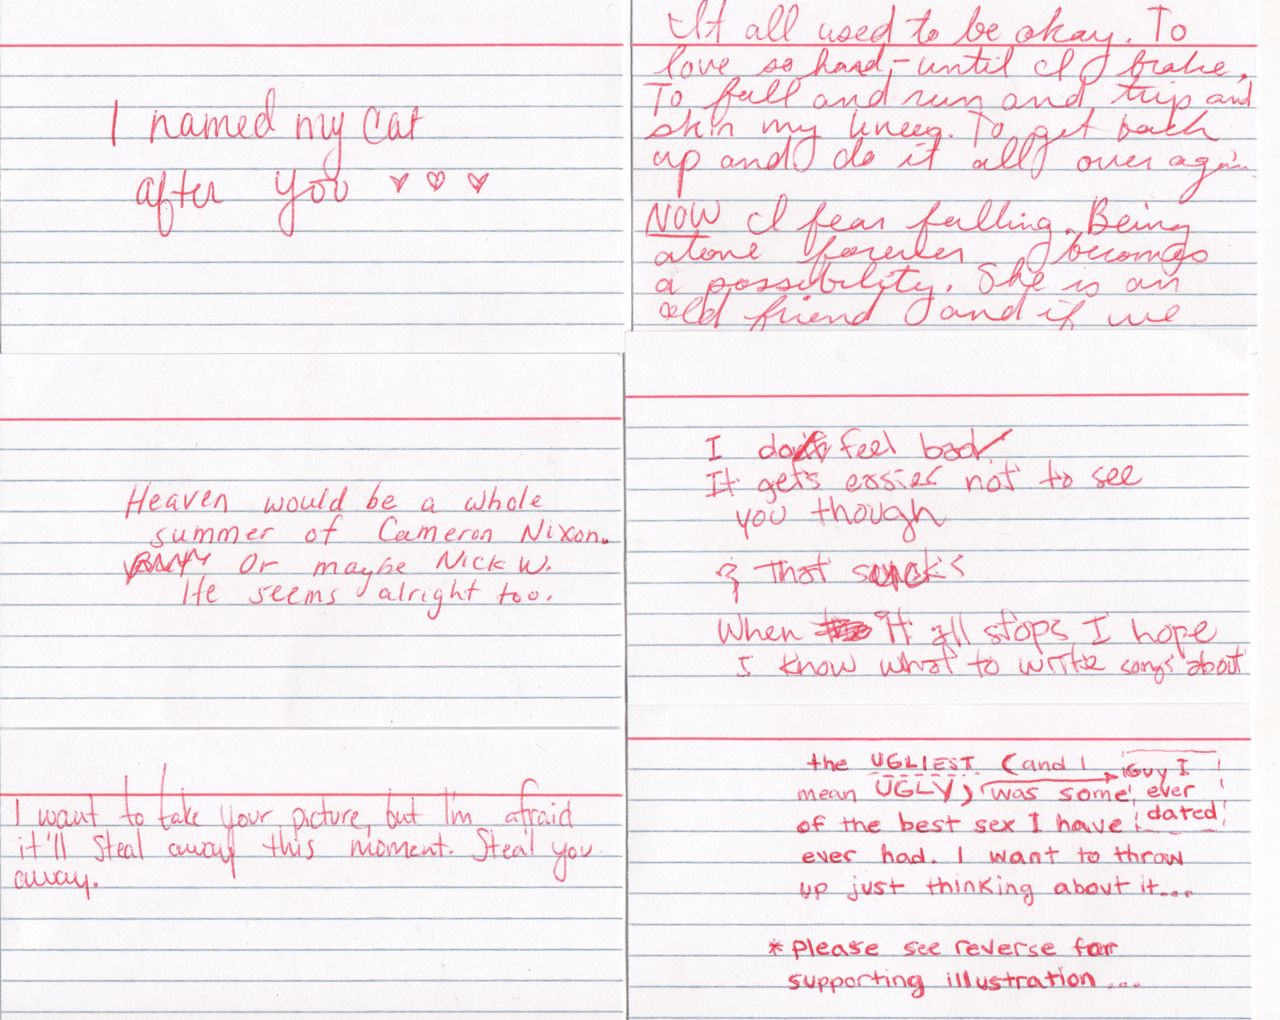 I named my cat
after you ♥ ♥ ♥
It all used to be okay. To
love so hard, - until I brake.
To fall and run and trip and
skin my knees. To get back
up and do it all over again.
NOW I fear falling. Being
alone forever becomes
a possibility. She is an
old friend and if we
Heaven would be a whole
summer of Cameron Nixon.
Or maybe Nick W.
He seems alright too.
I feel bad
It gets easier not to see
you though
& that sucks
When it all stops I hope
I know what to write songs about
I want to take your picture, but I'm afraid
it'll steal away this moment. Steal you
away.
the UGLIEST (and I
mean UGLY) guy I ever dated was some
of the best sex I have
ever had. I want to throw
up just thinking about it....
*please see reverse for
supporting illustration....